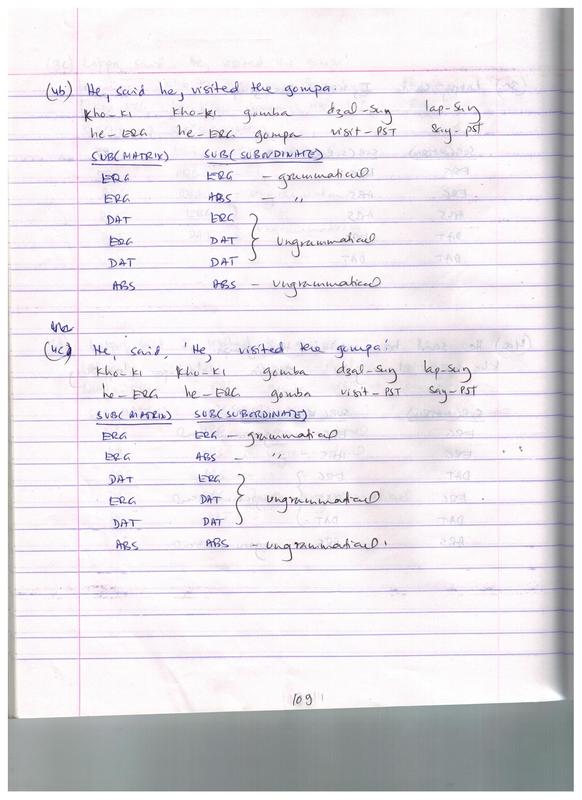 (4b) He, said he, visited the gompa.
kho-ki kho-ki gomba dzal-suŋ lap-suŋ
he-ERG he-ERG gompa visit-PST say-PST
SUB(MATRIX) SUB(SUBORDINATE)
ERG ERG - grammatical
ERG ABS - "
DAT ERG
ERG DAT } ungrammatical
DAT DAT
ABS ABS - ungrammatical
(4c) He, said, 'He, visited the gompa.'
kho-ki kho-ki gomba dzal-suŋ lap-suŋ
he-ERG he-ERG gomba visit-PST say-PST
SUB(MATRIX) SUB(SUBORDINATE)
ERG ERG - grammatical
ERG ABS - "
DAT ERG
ERG DAT } ungrammatical
DAT DAT
ABS ABS - ungrammatical.
109